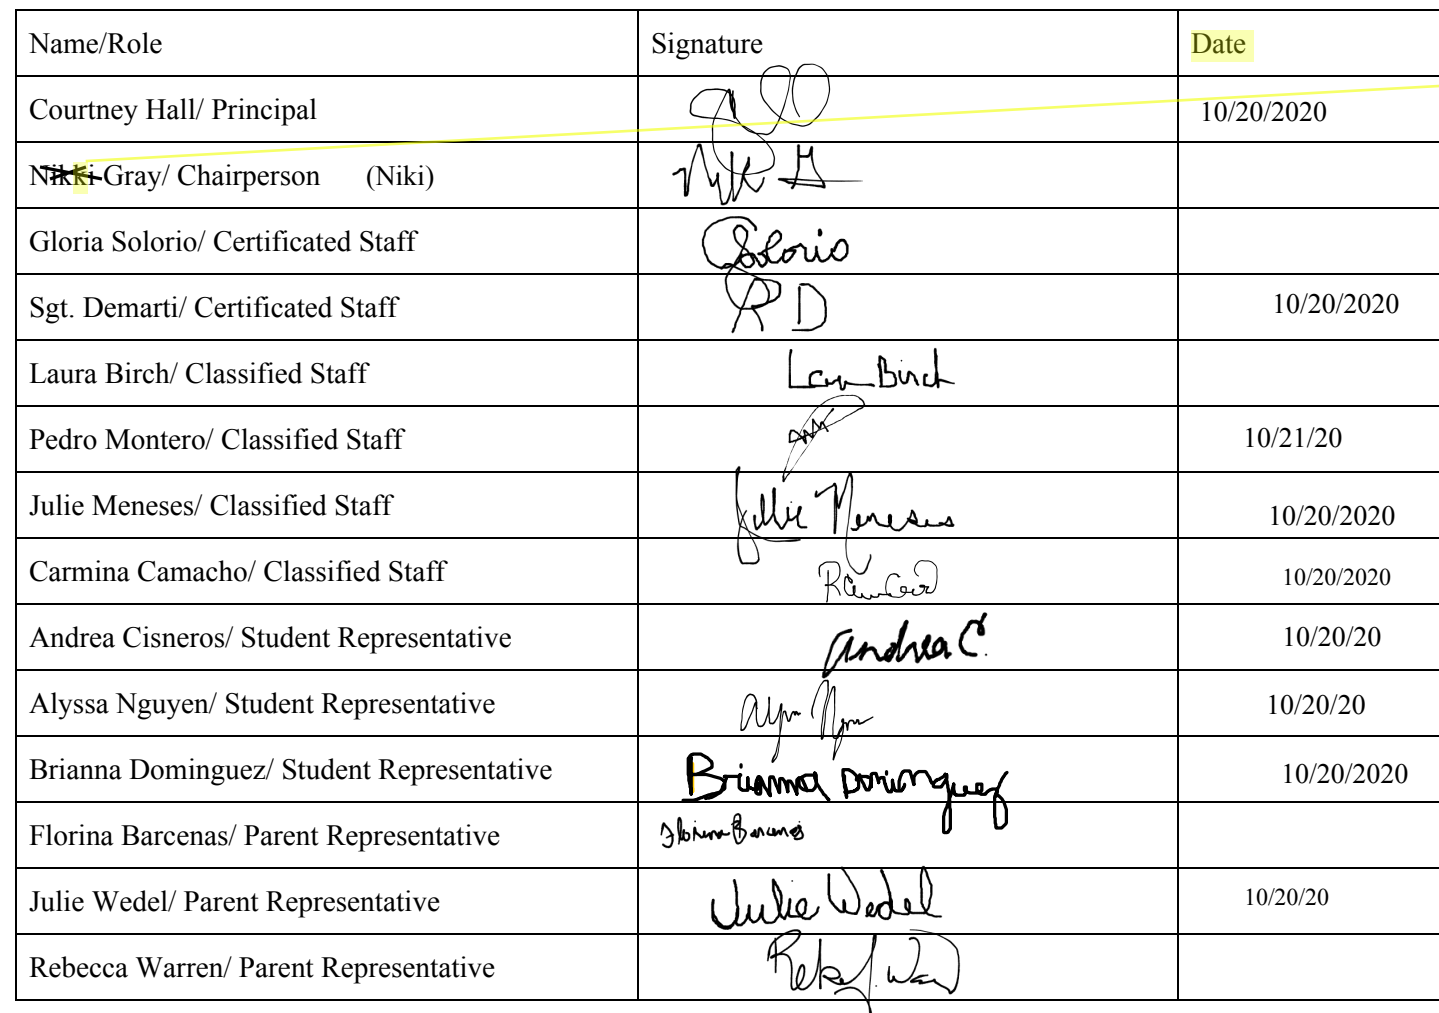 Name/Role Signature Date
Courtney Hall/ Principal 10/20/2020
Nikki Gray/ Chairperson (Niki)
Gloria Solorio/ Certificated Staff GSolorio
Sgt. Demarti/ Certificated Staff R D 10/20/2020
Laura Birch/ Classified Staff Laura Birch
Pedro Montero/ Classified Staff 10/21/20
Julie Meneses/ Classified Staff Julie Meneses 10/20/2020
Carmina Camacho/ Classified Staff 10/20/2020
Andrea Cisneros/ Student Representative Andrea C. 10/20/20
Alyssa Nguyen/ Student Representative 10/20/20
Brianna Dominguez/ Student Representative Brianna Dominguez 10/20/2020
Florina Barcenas/ Parent Representative Florina Barcenas
Julie Wedel/ Parent Representative Julie Wedel 10/20/20
Rebecca Warren/ Parent Representative